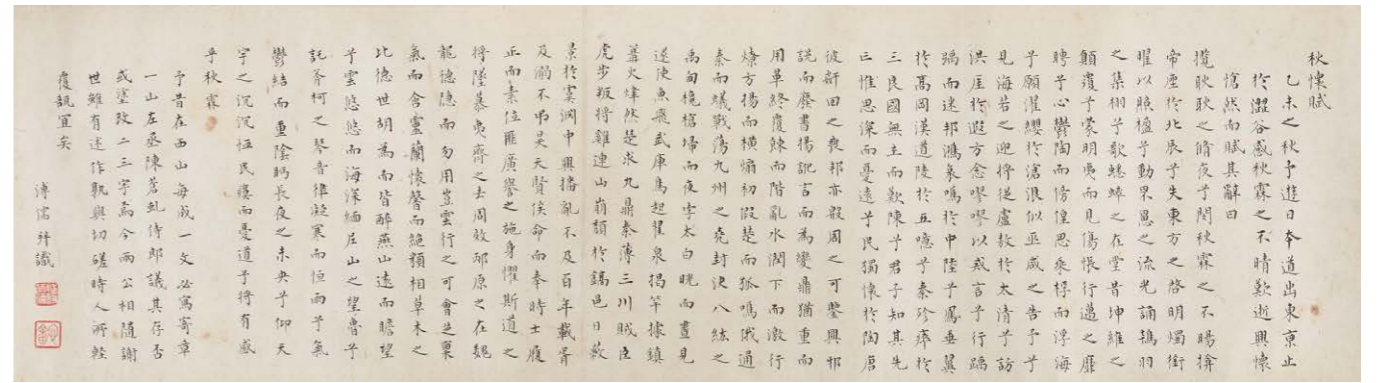 秋懷賦
乙未之秋予遊日本道出東京止
於澀谷感秋霖之不晴歎逝興懷
愴然而賦其辭曰
攬耿耿之脩夜兮閔秋霖之不暘揜
帝於北辰兮失東方之啓明燭銜
曜以照楹兮動罘罳之流光誦鴇羽
之集栩兮歌蟋蟀之在堂昔坤維之
顛覆兮蒙明夷而見傷悵行邁之靡
騁兮心鬱陶而傍徨思乘桴而浮海
兮願濯纓於滄浪似巫咸之告予兮
見海若之迎將從盧敖於太清兮訪
洪厓於遐方愈嘐嘐以戒言兮行踽
踽而邦鴻哀鳴於中陸兮鳳垂翼
於高岡漢道陵於五噫兮秦殄瘁於
三良國無主而歎陳兮君子知其先
亡惟思深而憂遠兮民獨懷於陶唐
彼田之喪邦亦殷周之可鑒興邪
說而廢書揚詭言而為變鼎猶重而
用單終覆餗而階亂水潤下而激行
燎方揚而橫煽初假楚而狐鳴俄通
秦而蟻戰蕩九州之堯封決八紘之
禹甸欃槍埽而夜孛太白晄而晝見
遂陳魚飛武庫馬起翟泉揭竿據鎮
篝火煒然楚求九鼎秦薄三川賊臣
虎步叛將雞連山崩於鎬邑日
景於淵中興播亂不及百年載胥
及溺不弔昊天賢俟命而奉時士履
正而素位匪廣譽之施身懼斯道之
將墜慕夷齊之士周效邴原之在魏
龍德隱而勿用豈雲行之可會芝稟
氣而含靈蘭懷馨而絕類相草木之
比德世胡為而皆醉燕山遠而瞻望
兮雲悠悠而海深緬尼山之望魯兮
託斧柯之琴音律凝寒而恒雨兮氣
鬱結而重陰眄長夜之未央兮仰天
宇之沉沉恤民瘼而憂道兮將有感
乎秋霖
予昔在西山每成一文必寫寄章
一山左丞陳蒼虬侍郎議其存否
或塗改二三字焉今兩公相隨謝
世雖有述作孰與切磋時人所輕
覆瓿宜矣
溥儒并識